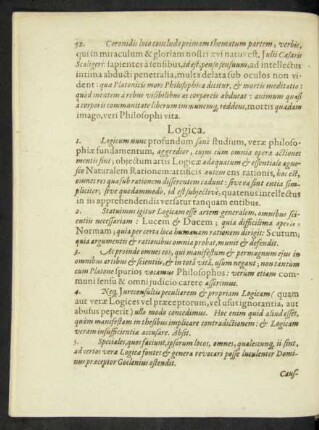 32. Coronidis loco concludo primam thematum partem, verbis,
qui in miraculum & gloriam nostri ævi natus est, Julii Cæsaris
Scaligeri: sapientes à sensibus, id est, pene sensuum, ad intellectus
intima abducti penetralia, multa delata sub oculos non vi-
dent: qua Platonicis mors Philosophica dicitur, & mortis meditatio:
quod mentem à rebus visibilibus ac corporeis abducat: animum quasi
à corporis communitate liberum immunemq, reddens, mortis quædam
imago, veri Philosophi vita.
Logica.
1. Logicum nunc profundum sanè studium, veræ philoso-
phiæ fundamentum, aggredior, cujus cum omnia opera actiones
mentis sint; objectum artis Logicæ adæquatum & essentiale agno-
sco Naturalem Rationem: artificis autem ens rationis, hoc est,
omnes res qua sub rationem disserentem cadunt: sive ea sint entia sim-
pliciter, sive quodammodo, id est subjectivè, quatenus intellectus
in iis apprehendendis versatur tanquam entibus.
2. Statuimus igitur Logicam esse artem generalem, omnibus sci-
entiis necessariam: Lucem & Ducem; quia difficilima aperit:
Normam; quia per certa loca humanam rationem dirigit: Scutum;
quia argumentis & rationibus omnia probat, munit & defendit.
3. Ac proinde omnes eos, qui manifestum & permagnum ejus in
omnibus artibus & scientiis, & in tota vitâ, usum negant, non tantum
cum Platone spurios vocamus Philosophos: verum etiam com-
muni sensu & omni judicio carere asserimus.
4. Neq, Jurisconsultis peculiarem & propriam Logicam, quam
aut veræ Logices vel præceptorum, vel usus ignorantia, aut
abusus peperit, ullo modo concedimus. Hoc enim quid aliud esset,
quàm manifestam in thesibus implicare contradictionem; & Logicam
veram insufficientiæ accusare. Absit.
5. Speciales, quos faciunt, ipsorum locos, omnes, qualescunq, ii sint,
ad certos veræ Logicæ fontes & genera revocari posse luculenter Domi-
nus præceptor Goclenius ostendit.
Caus-